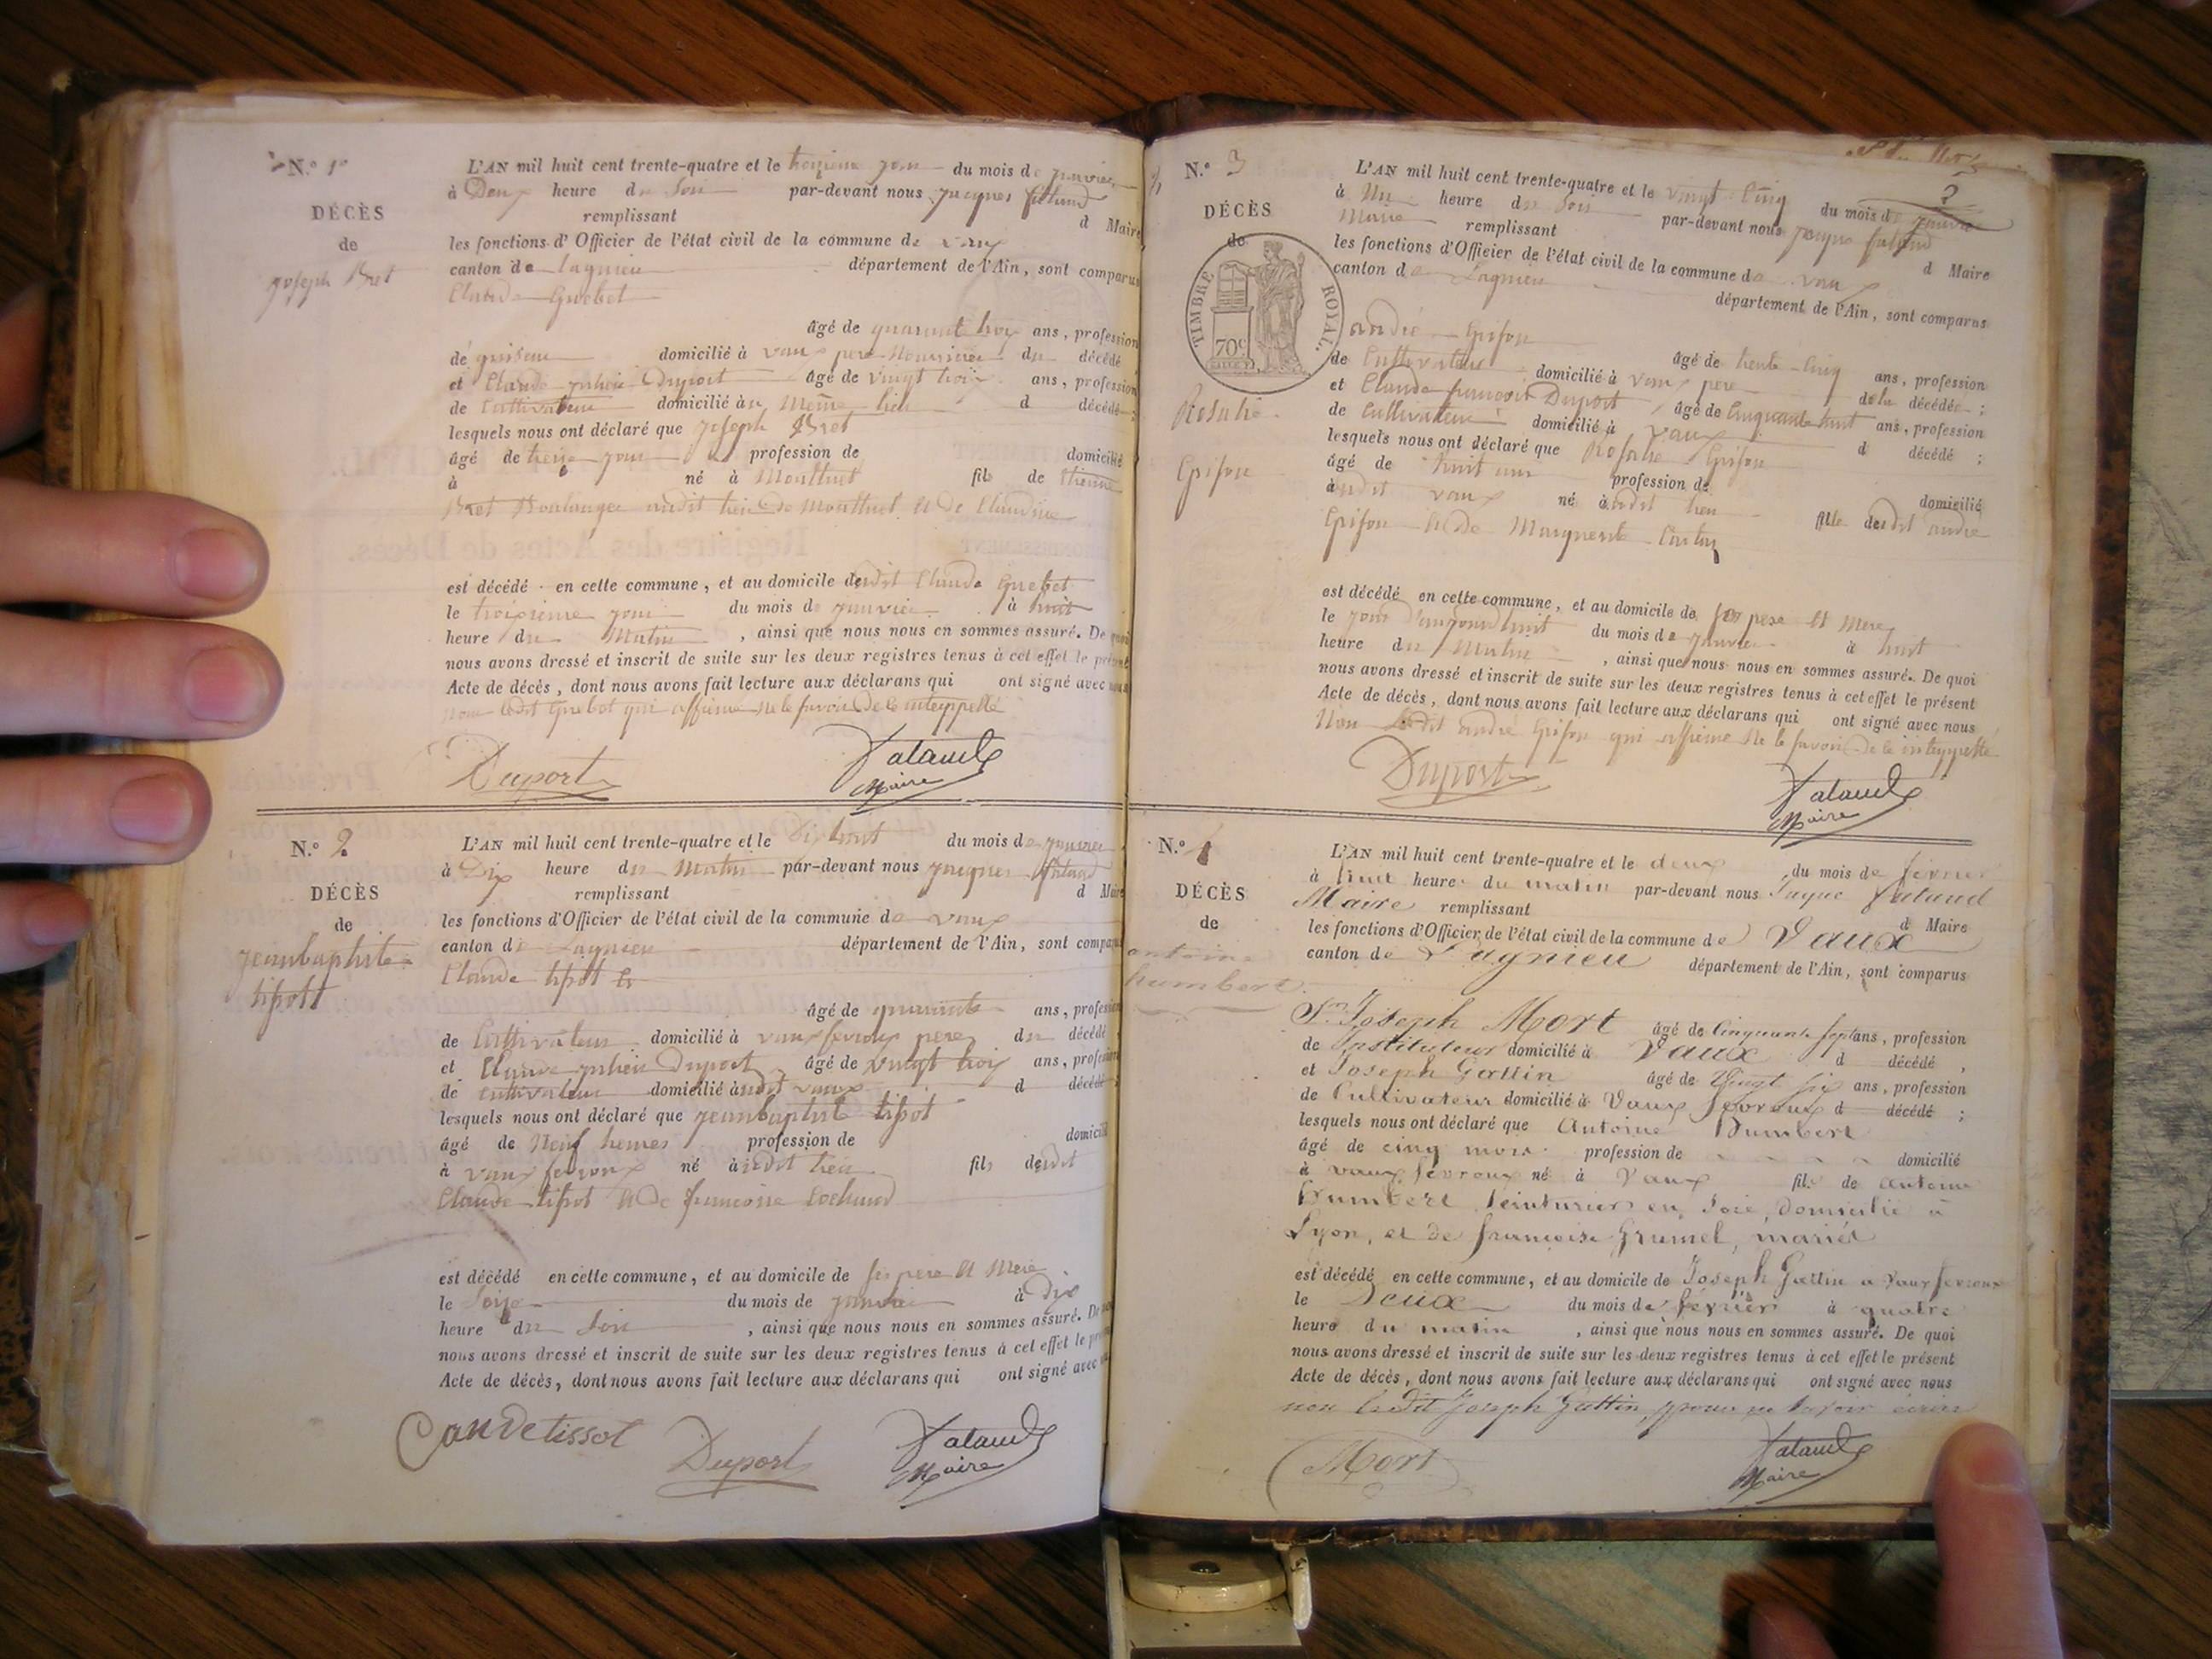 N.º 1er
DÉCÈS
de
joseph Bret
L'AN mil huit cent trente-quatre et le troizieme jour du mois de janvier
à Deux heure du Soir par-devant nous jacques fataud
remplissant d Maire
les fonctions d'Officier de l'état civil de la commune de vaux
canton de lagnieu département de l'Ain, sont comparus
Claude Guebet
âgé de quarant troix ans, profession
de domicilié à vaux pere Nouricier du décédé
et Claude julien Duport âgé de vingt troix ans, profession
de Cultivateur domicilié au Meme lieu d décédé ;
lesquels nous ont déclaré que joseph Bret
âgé de treize jour profession de domicilié
à né à Montluel fils de Etienne
Bret Boulanger audit lieu de Montluel et de Claudine
est décédé en cette commune, et au domicile dudit Claude Guebet
le troizieme jour du mois de janvier à huit
heure du Matin , ainsi que nous nous en sommes assuré. De quoi
nous avons dressé et inscrit de suite sur les deux registres tenus à cet effet le présent
Acte de décès, dont nous avons fait lecture aux déclarans qui ont signé avec nous
non ledit Guebet qui affirme ne le savoir de ce interppellé
Duport Fataud
Maire
N.º 2
DÉCÈS
de
jeanbaptiste
tissot
L'AN mil huit cent trente-quatre et le Dix huit du mois de janvier
à Dix heure du Matin par-devant nous jacques fataud
remplissant d Maire
les fonctions d'Officier de l'état civil de la commune de vaux
canton de Lagnieu département de l'Ain, sont comparus
Claude tissot
âgé de quarante ans, profession
de Cultivateur domicilié à vaux fevroux pere du décédé
et Claude julien Duport âgé de vingt troix ans, profession
de cultivateur domicilié audit vaux d décédé ;
lesquels nous ont déclaré que jeanbaptiste tissot
âgé de Neuf heures profession de domicilié
à vaux fevroux né audit lieu fils dudit
Claude tissot et de francoise Cochand
est décédé en cette commune, et au domicile de ses pere et Mere
le Seize du mois de janvier à dix
heure du Soir , ainsi que nous nous en sommes assuré. De
nous avons dressé et inscrit de suite sur les deux registres tenus à cet effet le
Acte de décès, dont nous avons fait lecture aux déclarans qui ont signé avec
Claudetissot Duport Fataud
Maire
N.º 3
DÉCÈS
de
TIMBRE ROYAL
70c
Rosalie
Grifon
L'AN mil huit cent trente-quatre et le vingt Cinq du mois de janvier
à Un heure du Soir par-devant nous jacques fataud
Maire remplissant d Maire
les fonctions d'Officier de l'état civil de la commune de vaux
canton de Lagnieu département de l'Ain, sont comparus
andré Grifon
âgé de trente Cinq ans, profession
de Cultivateur domicilié à vaux pere de la décédée ;
et Claude francois Duport âgé de Cinquante huit ans, profession
de Cultivateur domicilié à vaux d décédé ;
lesquels nous ont déclaré que Rosalie Grifon
âgé de huit ans profession de domicilié
audit vaux né audit lieu fille dudit andré
Grifon et de Marguerite
est décédé en cette commune, et au domicile de ses pere et Mere
le jour d'aujourd'huit du mois de janvier à huit
heure du Matin , ainsi que nous nous en sommes assuré. De quoi
nous avons dressé et inscrit de suite sur les deux registres tenus à cet effet le présent
Acte de décès, dont nous avons fait lecture aux déclarans qui ont signé avec nous
Non ledit andré Grifon qui affirme ne le savoir de ce interppellé
Duport Fataud
Maire
N.º 4
DÉCÈS
de
antoine
humbert
L'AN mil huit cent trente-quatre et le deux du mois de fevrier
à huit heure du matin par-devant nous Jaque Fataud
Maire remplissant d Maire
les fonctions d'Officier de l'état civil de la commune de Vaux
canton de Lagnieu département de l'Ain, sont comparus
Sr. Joseph Mort âgé de Cinquante sept ans, profession
de Instituteur domicilié à Vaux d décédé ,
et Joseph Gattin âgé de Vingt six ans, profession
de Cultivateur domicilié à Vaux fevroux d décédé ;
lesquels nous ont déclaré que Antoine Humbert
âgé de cinq mois profession de domicilié
à vaux fevroux né à Vaux fils de antoine
humbert teinturier en soie, domicilié à
Lyon, et de francoise Grumel, mariés
est décédé en cette commune, et au domicile de Joseph Gattin a Vaux fevroux
le Deux du mois de fevrier à quatre
heure du matin , ainsi que nous nous en sommes assuré. De quoi
nous avons dressé et inscrit de suite sur les deux registres tenus à cet effet le présent
Acte de décès, dont nous avons fait lecture aux déclarans qui ont signé avec nous
non ledit Joseph Gattin pour ne savoir ecrire
Mort Fataud
Maire